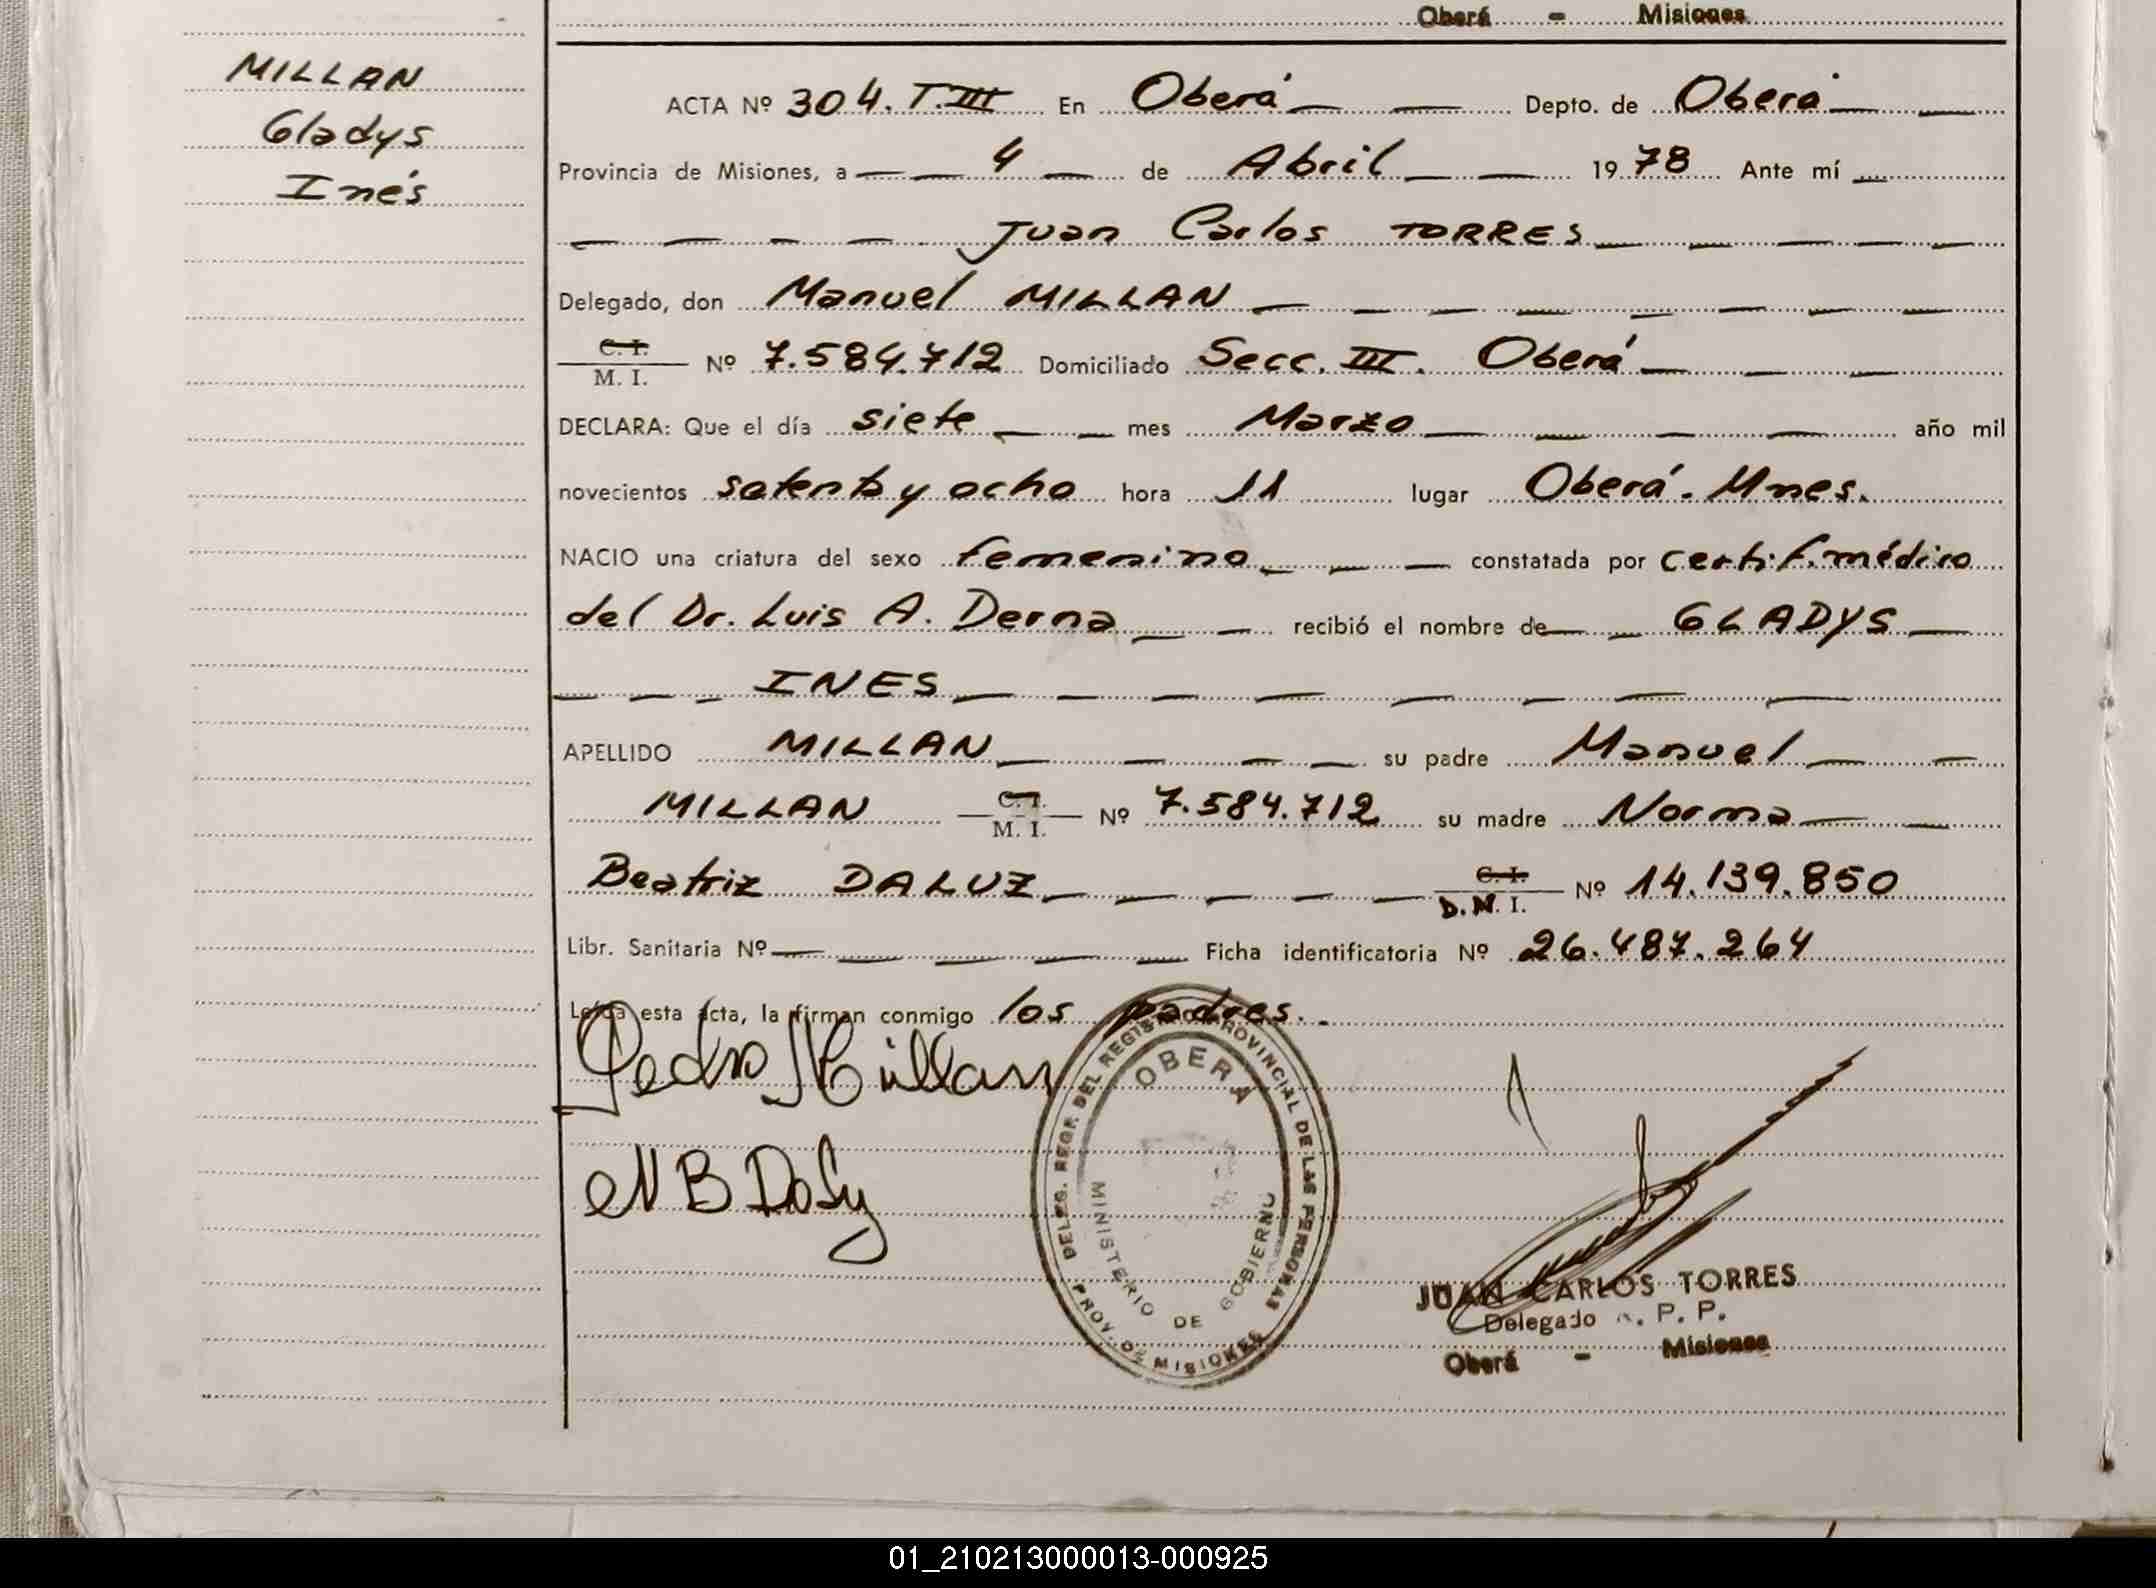 Oberá - Misiones
MILLAN
Gladys
Inés
ACTA Nº 304. T. III En Oberá Depto. de Oberá
Provincia de Misiones, a 4 de Abril 1978 Ante mí
Juan Carlos TORRES
Delegado, don Manuel MILLAN
C. I.
M. I. Nº 7.584.712 Domiciliado Secc. III. Oberá
DECLARA: Que el día siete mes Marzo año mil
novecientos setenta y ocho hora 11 lugar Oberá. Mnes.
NACIO una criatura del sexo femenino constatada por certif. médico
del Dr. Luis A. Derna recibió el nombre de GLADYS
INES
APELLIDO MILLAN su padre Manuel
MILLAN C. I.
M. I. Nº 7.584.712 su madre Norma
Beatriz DALUZ C. I.
D.N. I. Nº 14.139.850
Libr. Sanitaria Nº Ficha identificatoria Nº 26.487.264
Leída esta acta, la firman conmigo los padres.
Pedro Millan
N B Da
DELEG. REGR. DEL REGISTRO PROVINCIAL DE LAS PERSONAS
OBERA
MINISTERIO DE GOBIERNO
PROV. DE MISIONES
JUAN CARLOS TORRES
Delegado R. P. P.
Oberá - Misiones
01_210213000013-000925